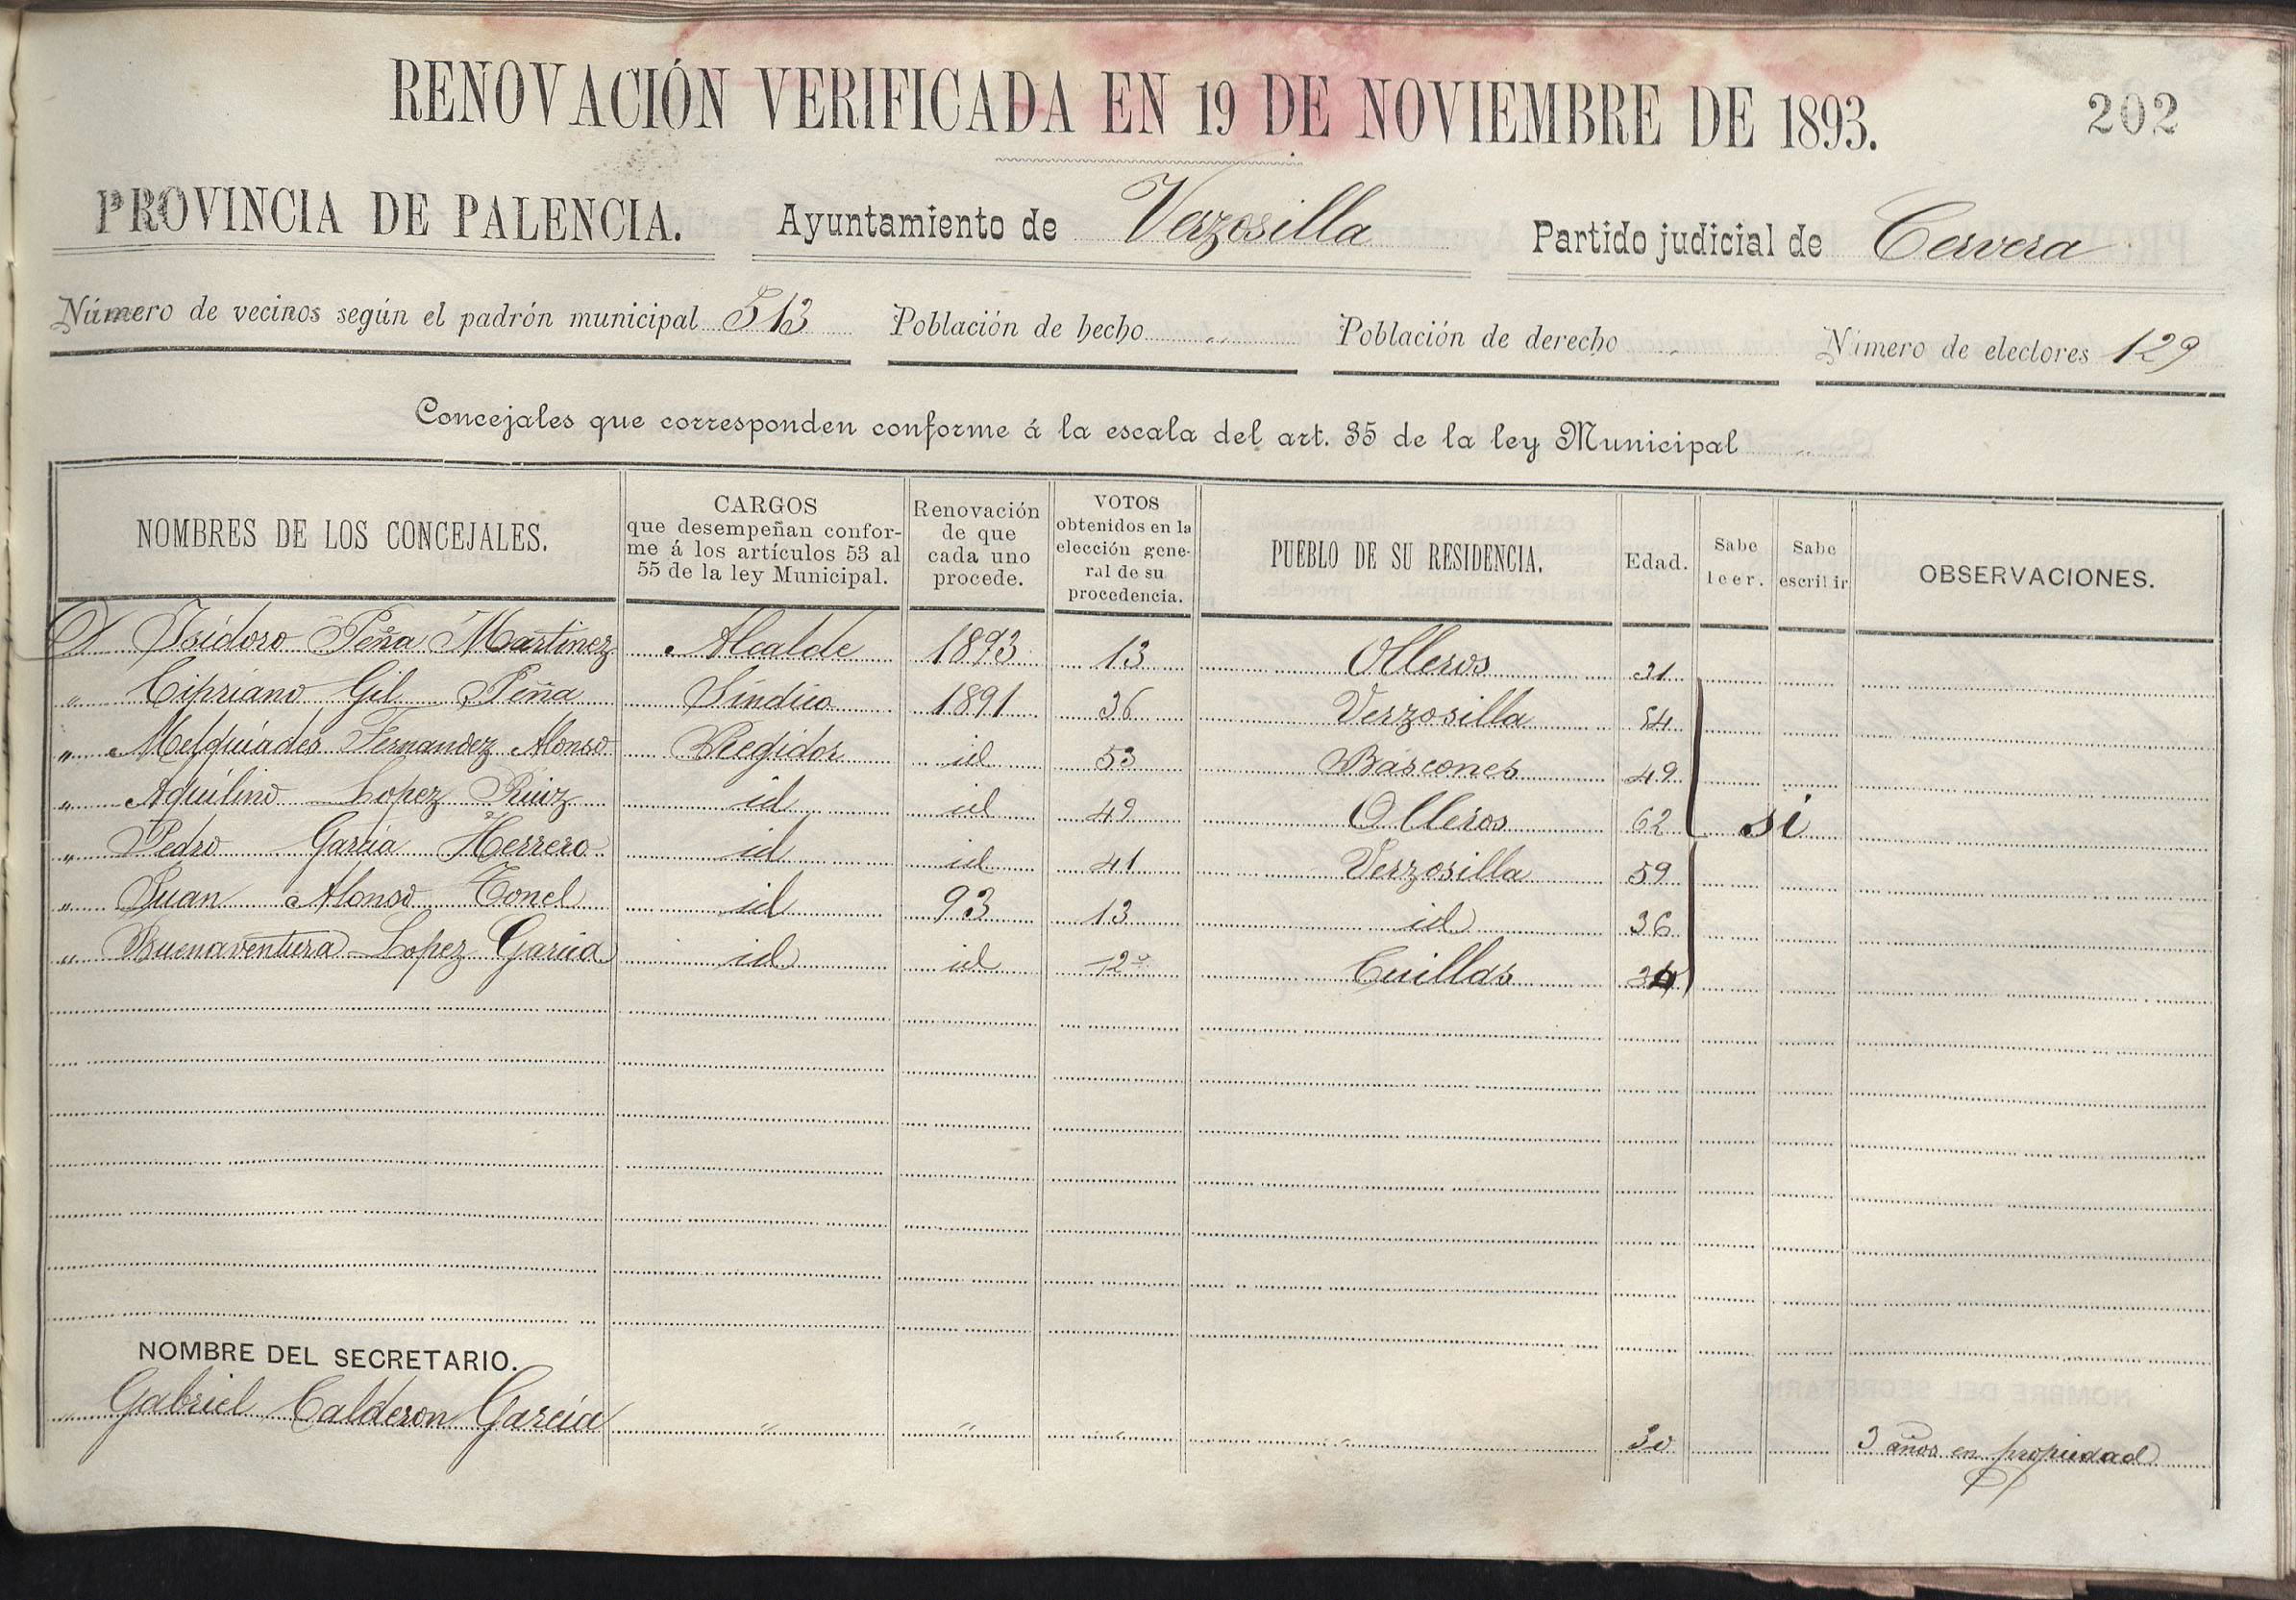 RENOVACIÓN VERIFICADA EN 19 DE NOVIEMBRE DE 1893.
202
PROVINCIA DE PALENCIA. Ayuntamiento de Verzosilla Partido judicial de Cervera
Número de vecinos según el padrón municipal 513 Población de hecho " Población de derecho " Número de electores 129
Concejales que corresponden conforme á la escala del art. 35 de la ley Municipal "
NOMBRES DE LOS CONCEJALES. CARGOS que desempeñan conforme á los artículos 53 al 55 de la ley Municipal. Renovación de que cada uno procede. VOTOS obtenidos en la elección general de su procedencia. PUEBLO DE SU RESIDENCIA. Edad. Sabe leer. Sabe escribir OBSERVACIONES.
D Isidoro Peña Martinez Alcalde 1893 13 Olleros 31
" Cipriano Gil Peña Síndico 1891 36 Verzosilla 54
" Melquiades Fernandez Alonso Regidor id 53 Báscones 49
" Aquilino Lopez Ruiz id id 49 Olleros 62 si
" Pedro Garcia Herrero id id 41 Verzosilla 59
" Juan Alonso Tonel id 93 13 id 36
" Buenaventura Lopez Garcia id id 12 Cuillas 34
NOMBRE DEL SECRETARIO.
" Gabriel Calderon Garcia " " " " 30 3 años en propiedad